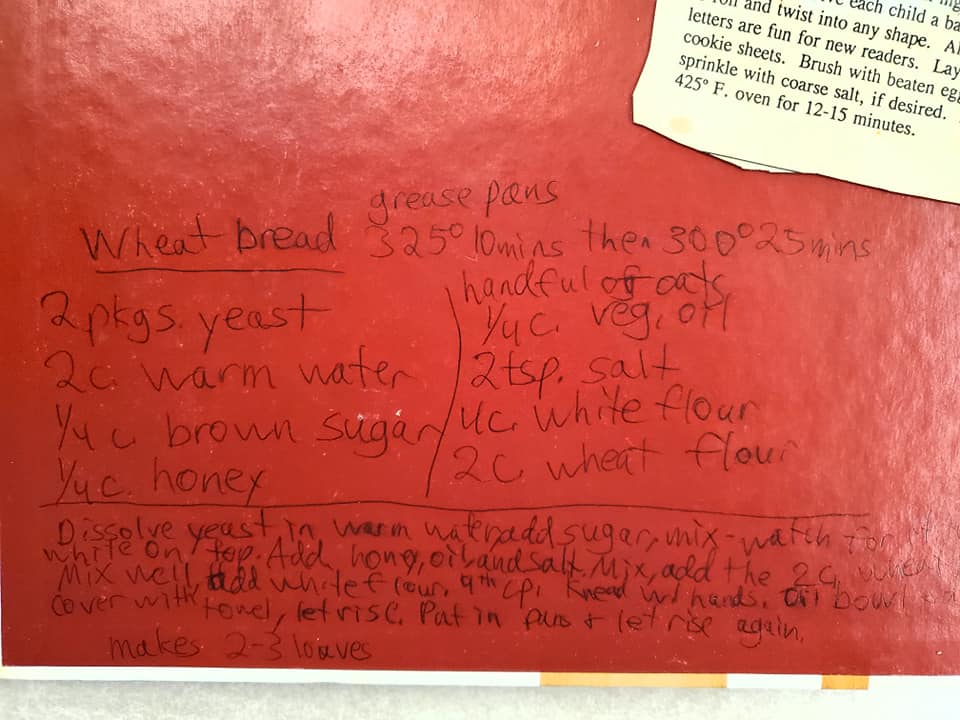 each child a
and twist into any shape.
letters are fun for new readers. Lay
cookie sheets. Brush with beaten egg
sprinkle with coarse salt, if desired.
425° F. oven for 12-15 minutes.
grease pans
Wheat bread 325° 10mins then 300° 25mins
2 pkgs. yeast
2c. warm water
1/4 c. brown sugar
1/4 c. honey
handful of oats
1/4 c. veg. oil
2 tsp. salt
4c. white flour
2c. wheat flour
Dissolve yeast in warm water, add sugar, mix - watch for
white on top. Add honey, oil and salt. Mix, add the 2c.
Mix well, add white flour, 4th cp. Knead w/ hands. Oil bowl
cover with towel, let rise. Put in pans + let rise again.
makes 2-3 loaves